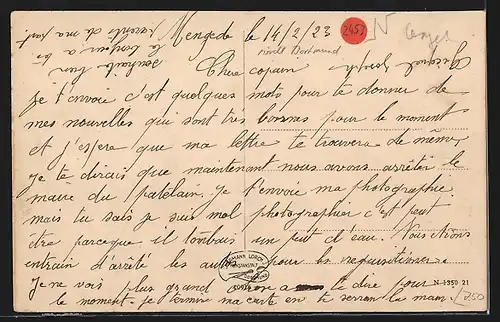 Mengede le 14/2/23
2453
N
nördl. Dortmund
souhaite bien
le bonjour a tes
parents de ma part.
Cher copain
je t'envoie c'est quelques mots pour te donner de
mes nouvelles qui sont très bonnes pour le moment
et j'espere que ma lettre te trouvera de même
je te dirais que maintenant nous avons arrêter le
maire du patelain. Je t'envoie ma photographie
mais tu sais je suis mal photographier c'est peut
être parceque il tombais un peut d'eau. Nous etions
entrain d'arrêté les autos pour les requisitionner.
Je ne vois plus grand chose a te dire pour
le moment. je termine ma carte en te serran la main.
N 1350 21
750